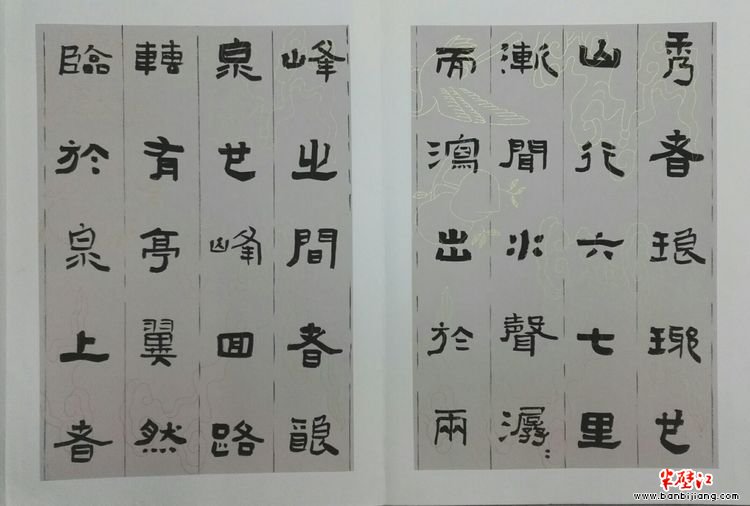 秀者琅琊也
山行六七里
漸聞水聲潺〻
而瀉出於兩
峰之間者酿
泉也峰回路
轉有亭翼然
臨於泉上者
半壁江
www.banbijiang.com